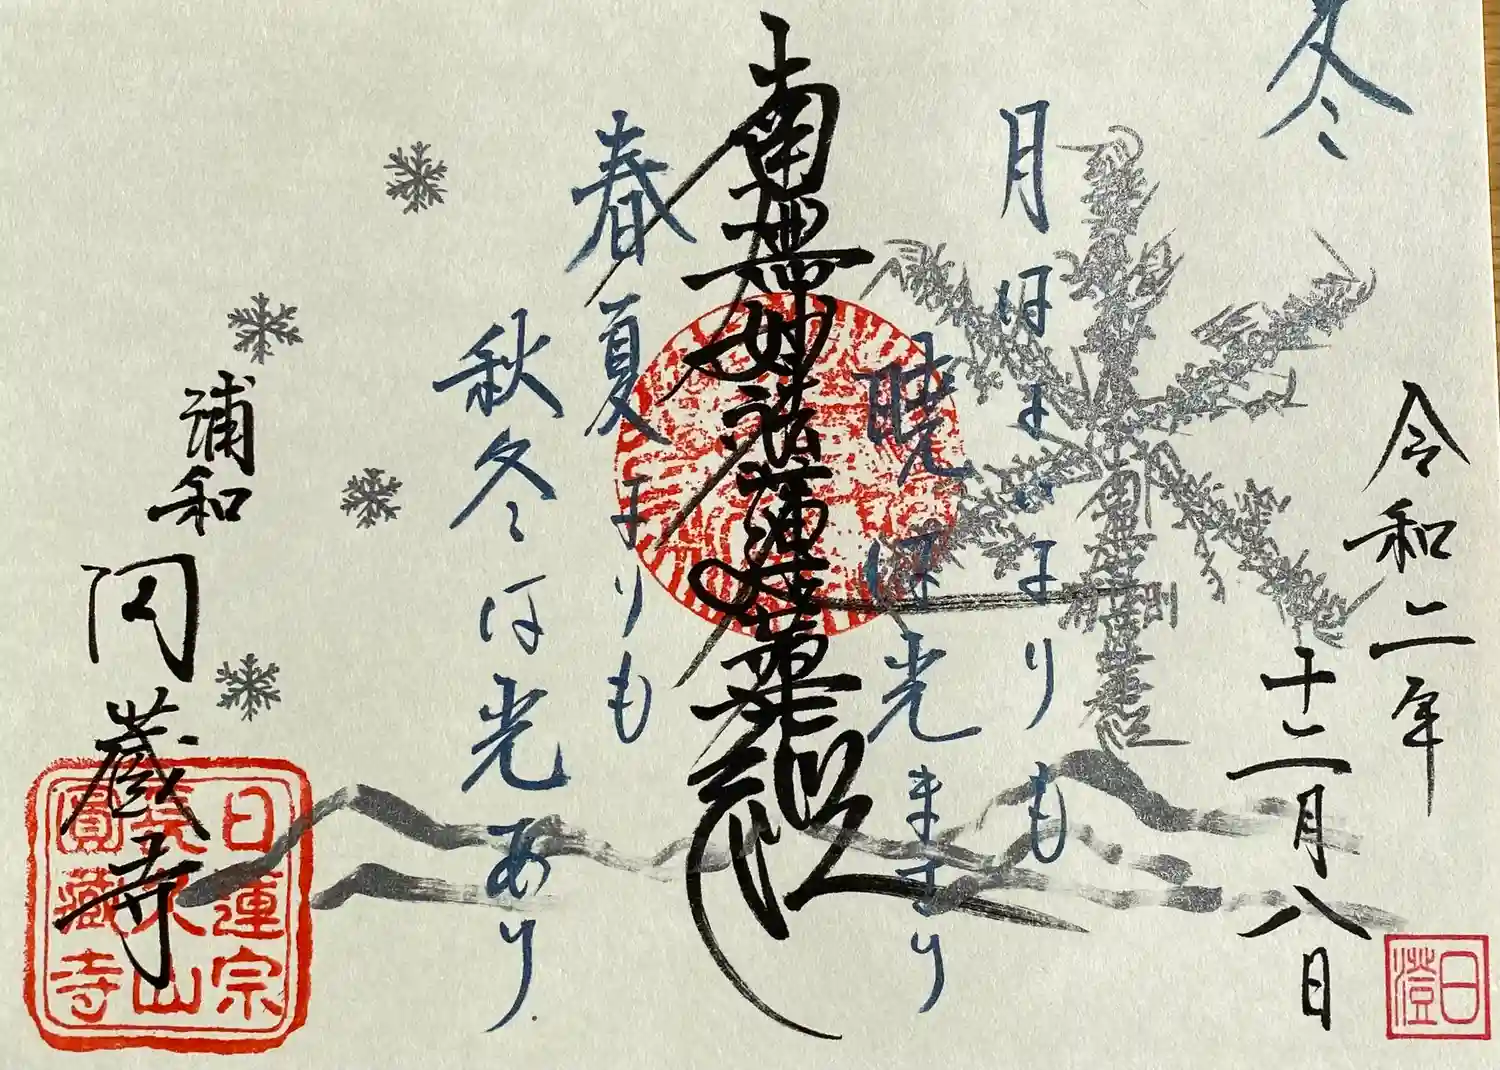 冬
令和二年
十二月八日
日澄
月はよいよりも
暁は光まさり
南無妙法蓮華経
春夏よりも
秋冬は光あり
浦和
円蔵寺
日蓮宗
長久山
圓蔵寺